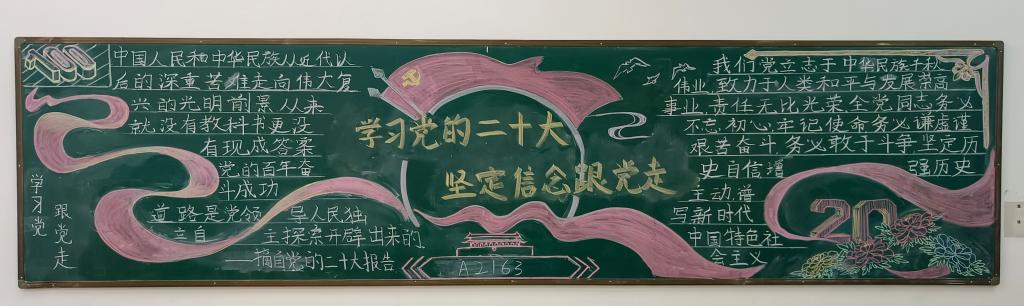 中国人民和中华民族从近代以
后的深重苦难走向伟大复
兴的光明前景从来
就没有教科书更没
有现成答案
党的百年奋
斗成功
道路是党领 导人民独
立自 主探索开辟出来的
——摘自党的二十大报告
学习党
跟党走
学习党的二十大
坚定信念跟党走
A2163
我们党立志于中华民族千秋
伟业,致力于人类和平与发展崇高
事业,责任无比光荣全党同志务必
不忘初心,牢记使命务必谦虚谨
艰苦奋斗务必敢于斗争坚定历
史自信增 强历史
主动谱
写新时代
中国特色社
会主义
20